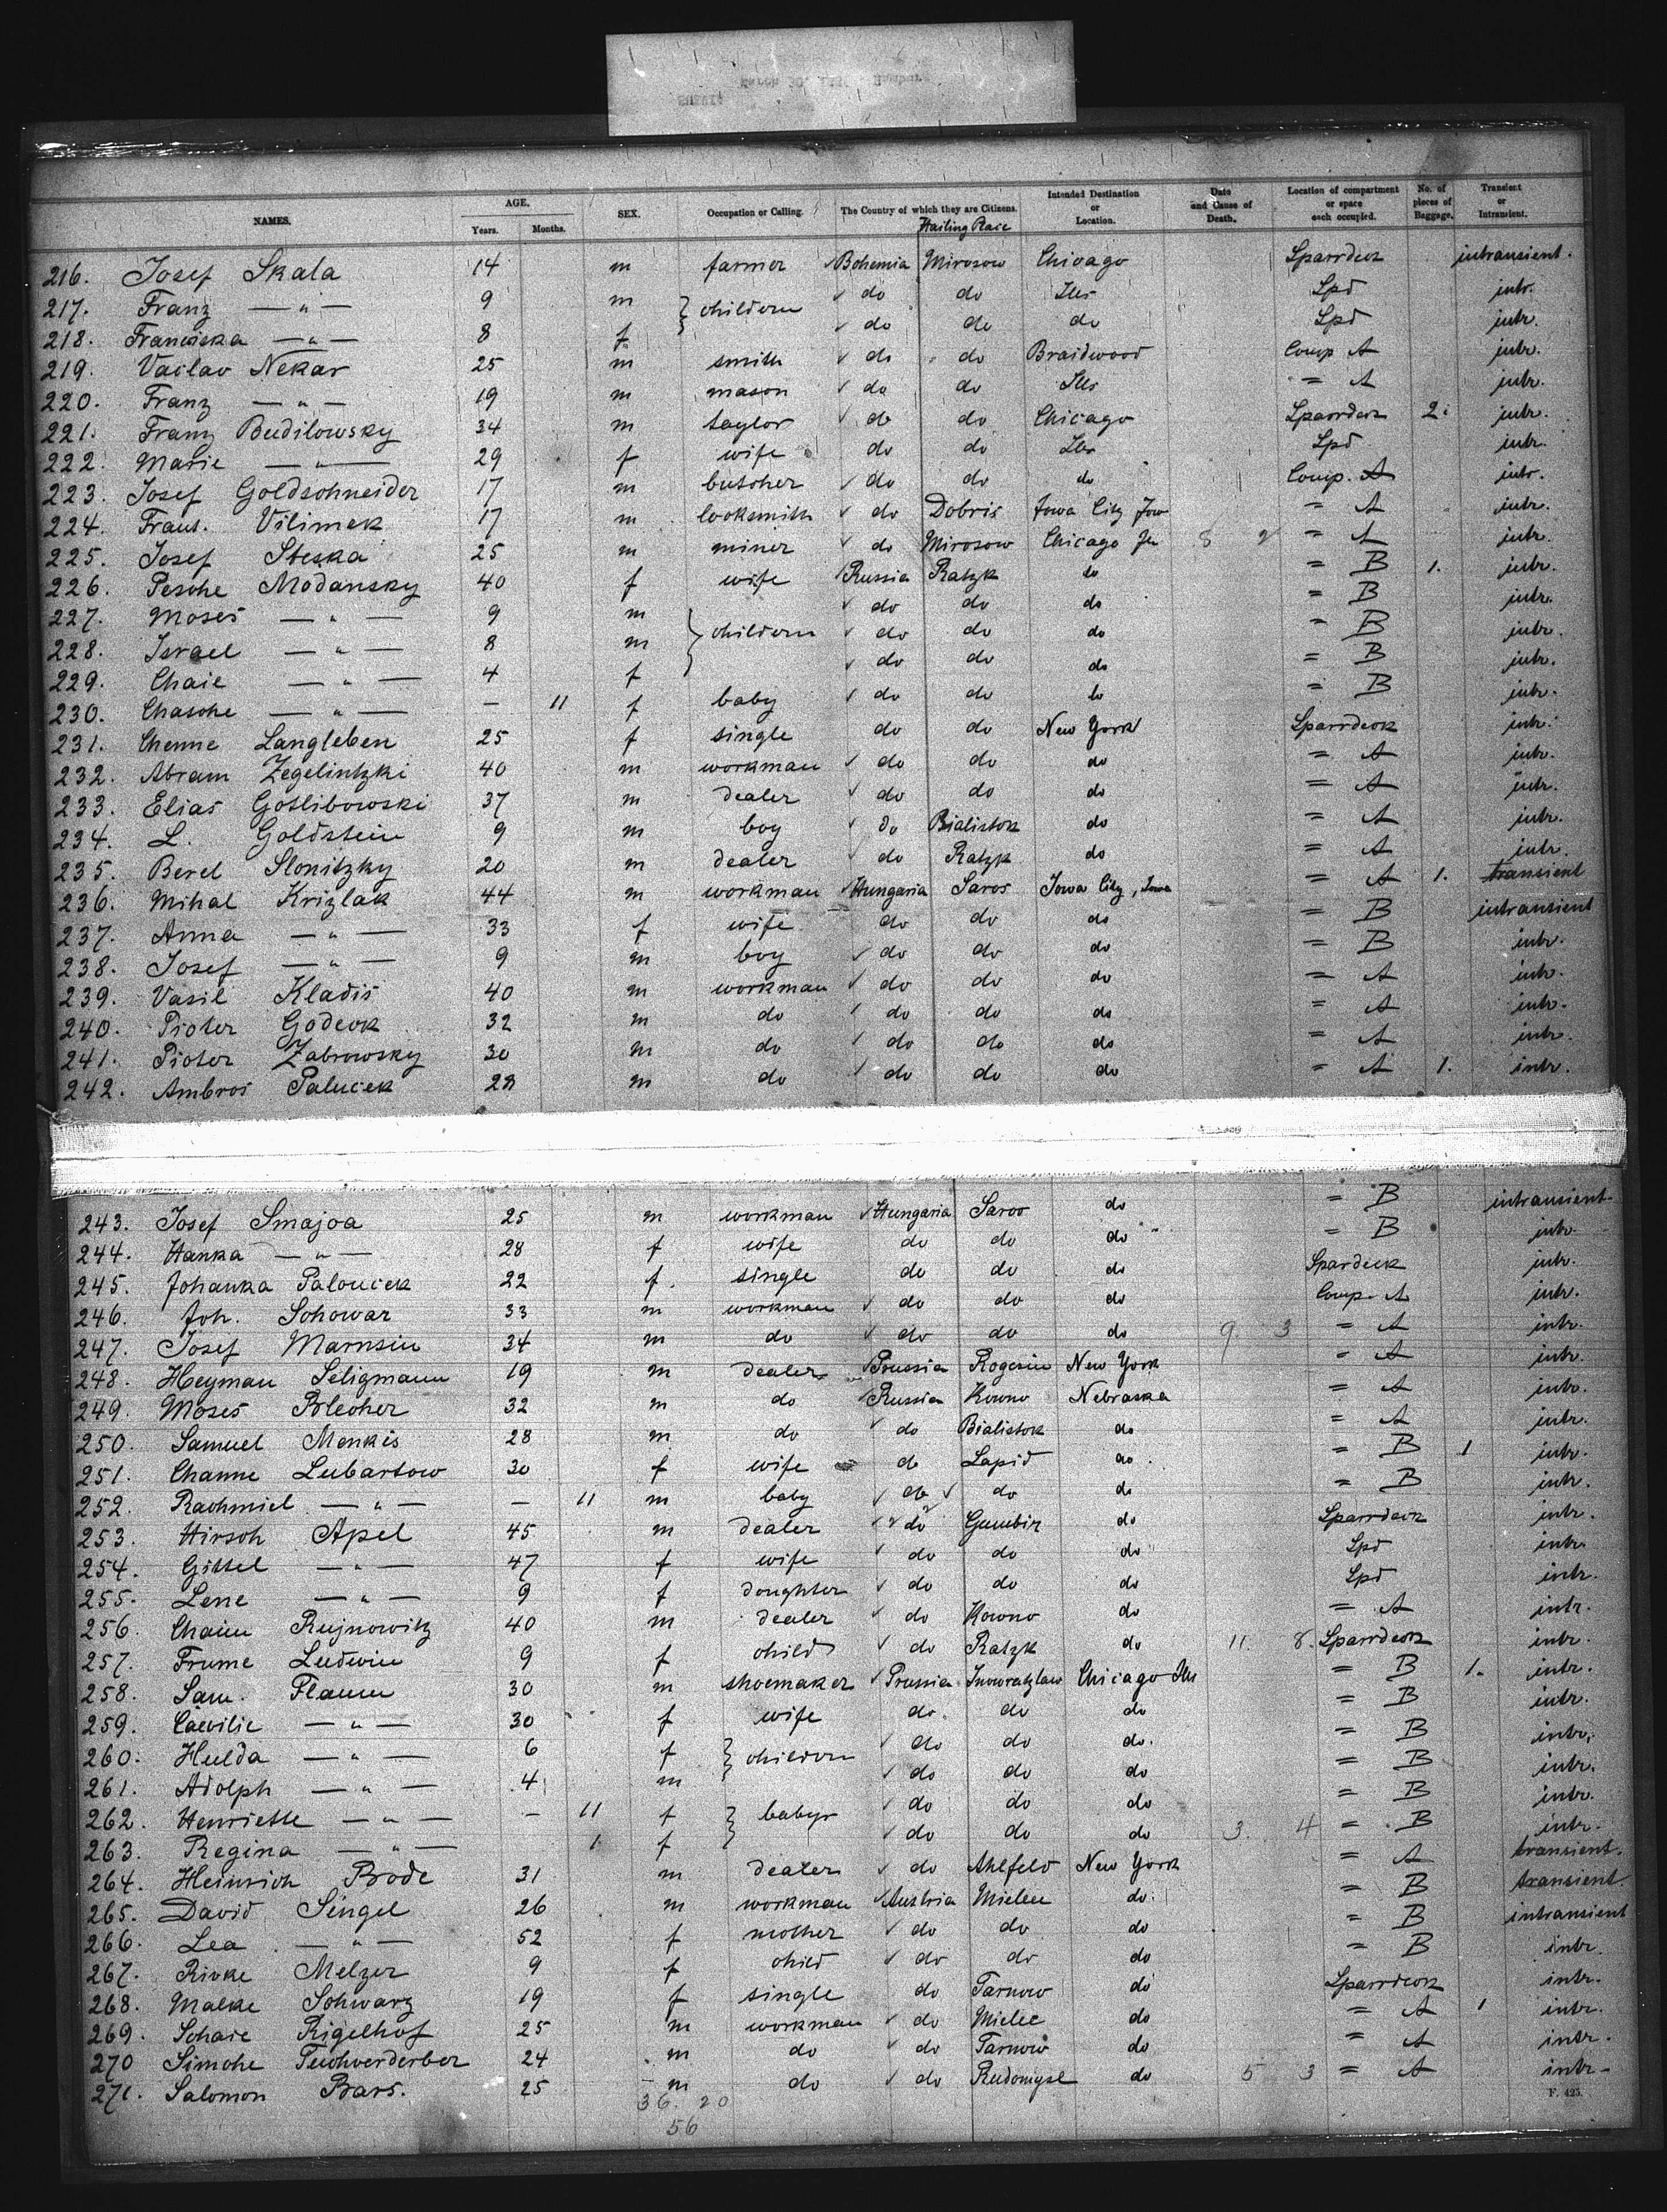 NAMES. AGE. Years. Months. SEX. Occupation or Calling. The Country of which they are Citizens. Hailing Place Intended Destination or Location. Date and Cause of Death. Location of compartment or space each occupied. No. of pieces of Baggage. Transient or Intransient.
216. Josef Skala 14 m farmer Bohemia Mirosow Chicago Sparrdeck intransient.
217. Franz — " — 9 m } children do do Ills Spd intr.
218. Franciska — " — 8 f do do do Spd intr.
219. Vaclav Nekar 25 m smith do do Braidwood Comp A intr.
220. Franz — " — 19 m mason do do Ills = A intr.
221. Franz Budilowsky 34 m taylor do do Chicago Sparrdeck 2. intr.
222. Marie — " — 29 f wife do do Ills Spd intr.
223. Josef Goldschneider 17 m butcher do do do Comp. A intr.
224. Franz. Vilimek 17 m locksmith do Dobris Iowa City Iow = A intr.
225. Josef Steska 25 m miner do Mirosow Chicago 8 2 = A intr.
226. Pesche Modansky 40 f wife Russia Ratzk do = B 1. intr.
227. Moses — " — 9 m do do do = B intr.
228. Israel — " — 8 m } children do do do = B intr.
229. Chaie — " — 4 f do do do = B intr.
230. Chasche — " — — 11 f baby do do do = B intr.
231. Chenne Langleben 25 f single do do New York Sparrdeck intr.
232. Abram Zegelintzki 40 m workman do do do = A intr.
233. Elias Gotlibowski 37 m dealer do do do = A intr.
234. L. Goldstein 9 m boy do Bialistok do = A intr.
235. Berel Slonitzky 20 m dealer do Ratzk do = A intr.
236. Mihal Krizlak 44 m workman Hungaria Saros Iowa City, Iowa = A 1. transient
237. Anna — " — 33 f wife do do do = B intransient
238. Josef — " — 9 m boy do do do = B intr.
239. Vasil Kladis 40 m workman do do do = A intr.
240. Pioter Godeck 32 m do do do do = A intr.
241. Pioter Zabrowsky 30 m do do do do = A intr.
242. Ambros Palucek 28 m do do do do = A 1. intr.
243. Josef Smajca 25 m workman Hungaria Saros do = B intransient
244. Hanka — " — 28 f wife do do do = B intr.
245. Johanka Paloucek 22 f. single do do do Spardeck intr.
246. Joh. Schowar 33 m workman do do do Comp. A intr.
247. Josef Marnsin 34 m do do do do 9. 3 = A intr.
248. Heyman Seligmann 19 m dealer Prussia Rogesin New York = A intr.
249. Moses Blecher 32 m do Russia Kowno Nebraska = A intr.
250. Samuel Menkis 28 m do do Bialistok do = A intr.
251. Channe Lubartow 30 f wife do Lapid do. = B 1 intr.
252. Rachmiel — " — — 11 m baby do do do = B intr.
253. Hirsch Apel 45 m dealer do Gumbin do Sparrdeck intr.
254. Gittel — " — 47 f wife do do do Spd intr.
255. Lene — " — 9 f doughter do do do Spd intr.
256. Chaim Rujnowitz 40 m dealer do Kowno do = A intr.
257. Frume Ludwin 9 f child do Ratzk do 11. 8. Sparrdeck intr.
258. Sam. Flaum 30 m shoemaker Prussia Inowratzlaw Chicago Ills = B 1. intr.
259. Caecilie — " — 30 f wife do. do do = B intr.
260. Hulda — " — 6 f } children do do do. = B intr.
261. Adolph — " — 4 m do do do = B intr.
262. Henriette — " — — 11 f } babys do do do = B intr.
263. Regina — " — 1 f do do do 3. 4 = B intr.
264. Heinrich Bode 31 m dealer do Ahlfeld New York = A transient.
265. David Singel 26 m workman Austria Mielec do. = B transient
266. Lea — " — 52 f mother do do do = B intransient
267. Rivke Melzer 9 f child do do do = B intr.
268. Malke Schwarz 19 f single do Tarnow do Sparrdeck intr.
269. Schaie Rigelhof 25 m workman do Mielec do = A 1 intr.
270 Simche Teichverderber 24 m do do Tarnow do = A intr.
271. Salomon Bars. 25 m do do Rudomysl do 5 3 = A intr-
36. 20
56
F. 425.